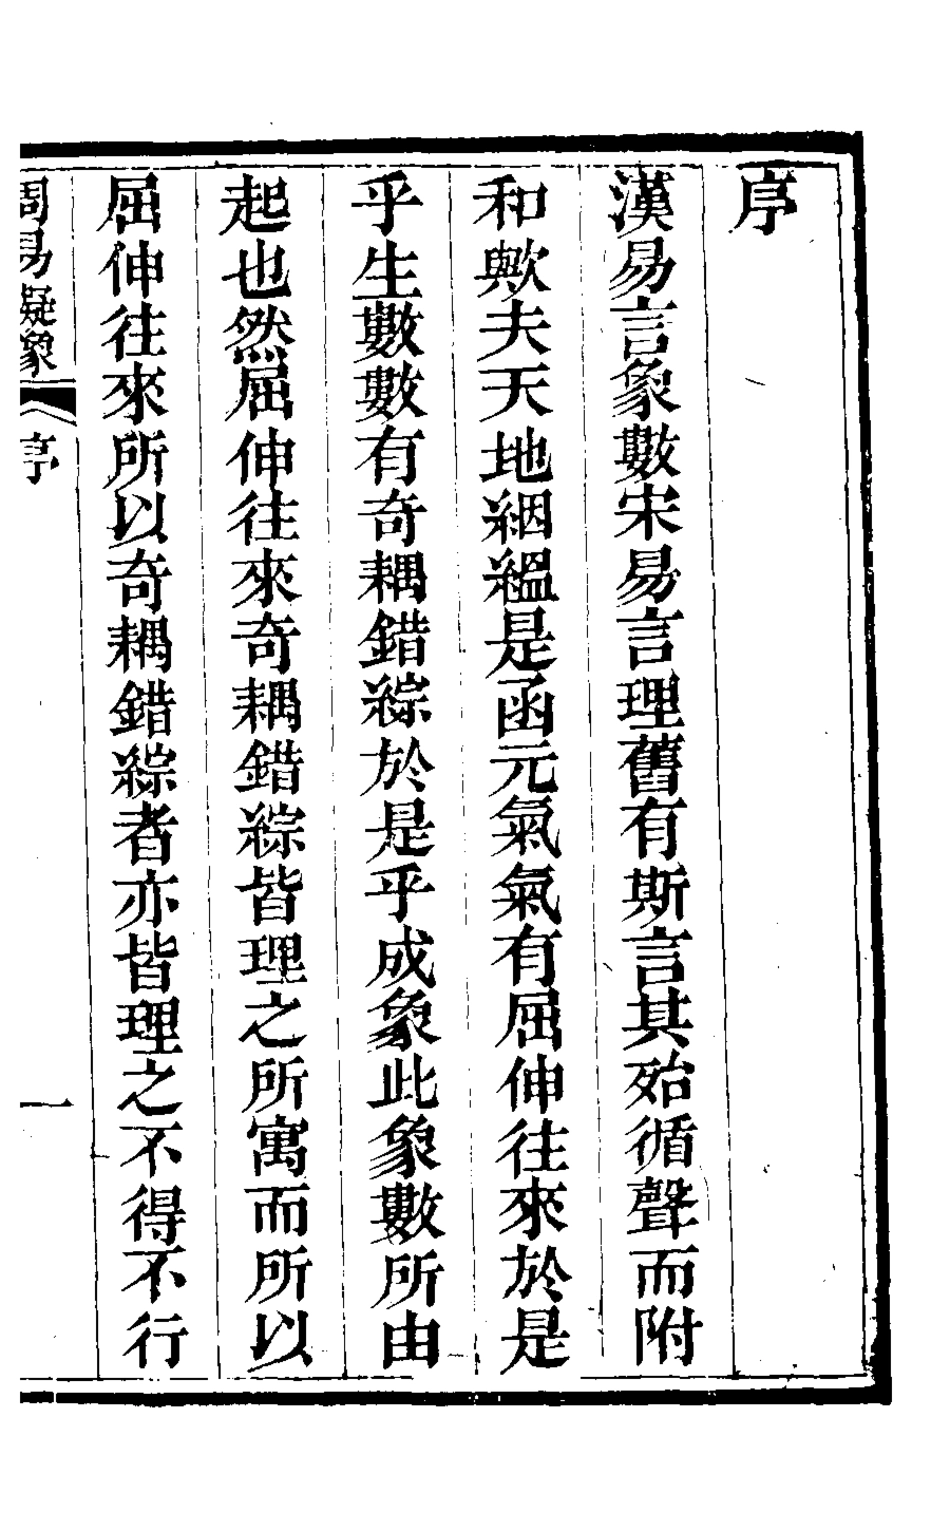 序
漢易言象數宋易言理舊有斯言其殆循聲而附
和歟夫天地絪縕是函元氣氣有屈伸往來於是
乎生數數有奇耦錯綜於是乎成象此象數所由
起也然屈伸往來奇耦錯綜皆理之所寓而所以
屈伸往來所以奇耦錯綜者亦皆理之不得不行
周易凝象
序
一